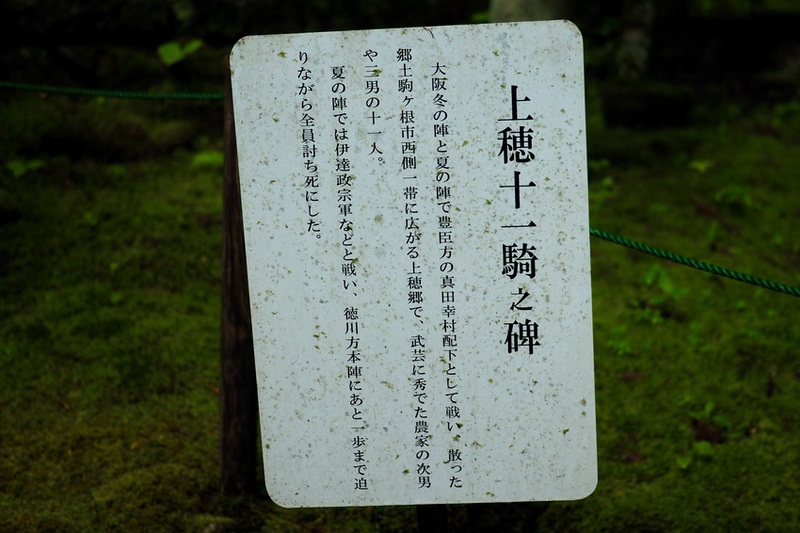 上穂十一騎之碑
大阪冬の陣と夏の陣で豊臣方の真田幸村配下として戦い、散った
郷土駒ヶ根市西側一帯に広がる上穂郷で、武芸に秀でた農家の次男
や三男の十一人。
夏の陣では伊達政宗軍などと戦い、徳川方本陣にあと一歩まで迫
りながら全員討ち死にした。